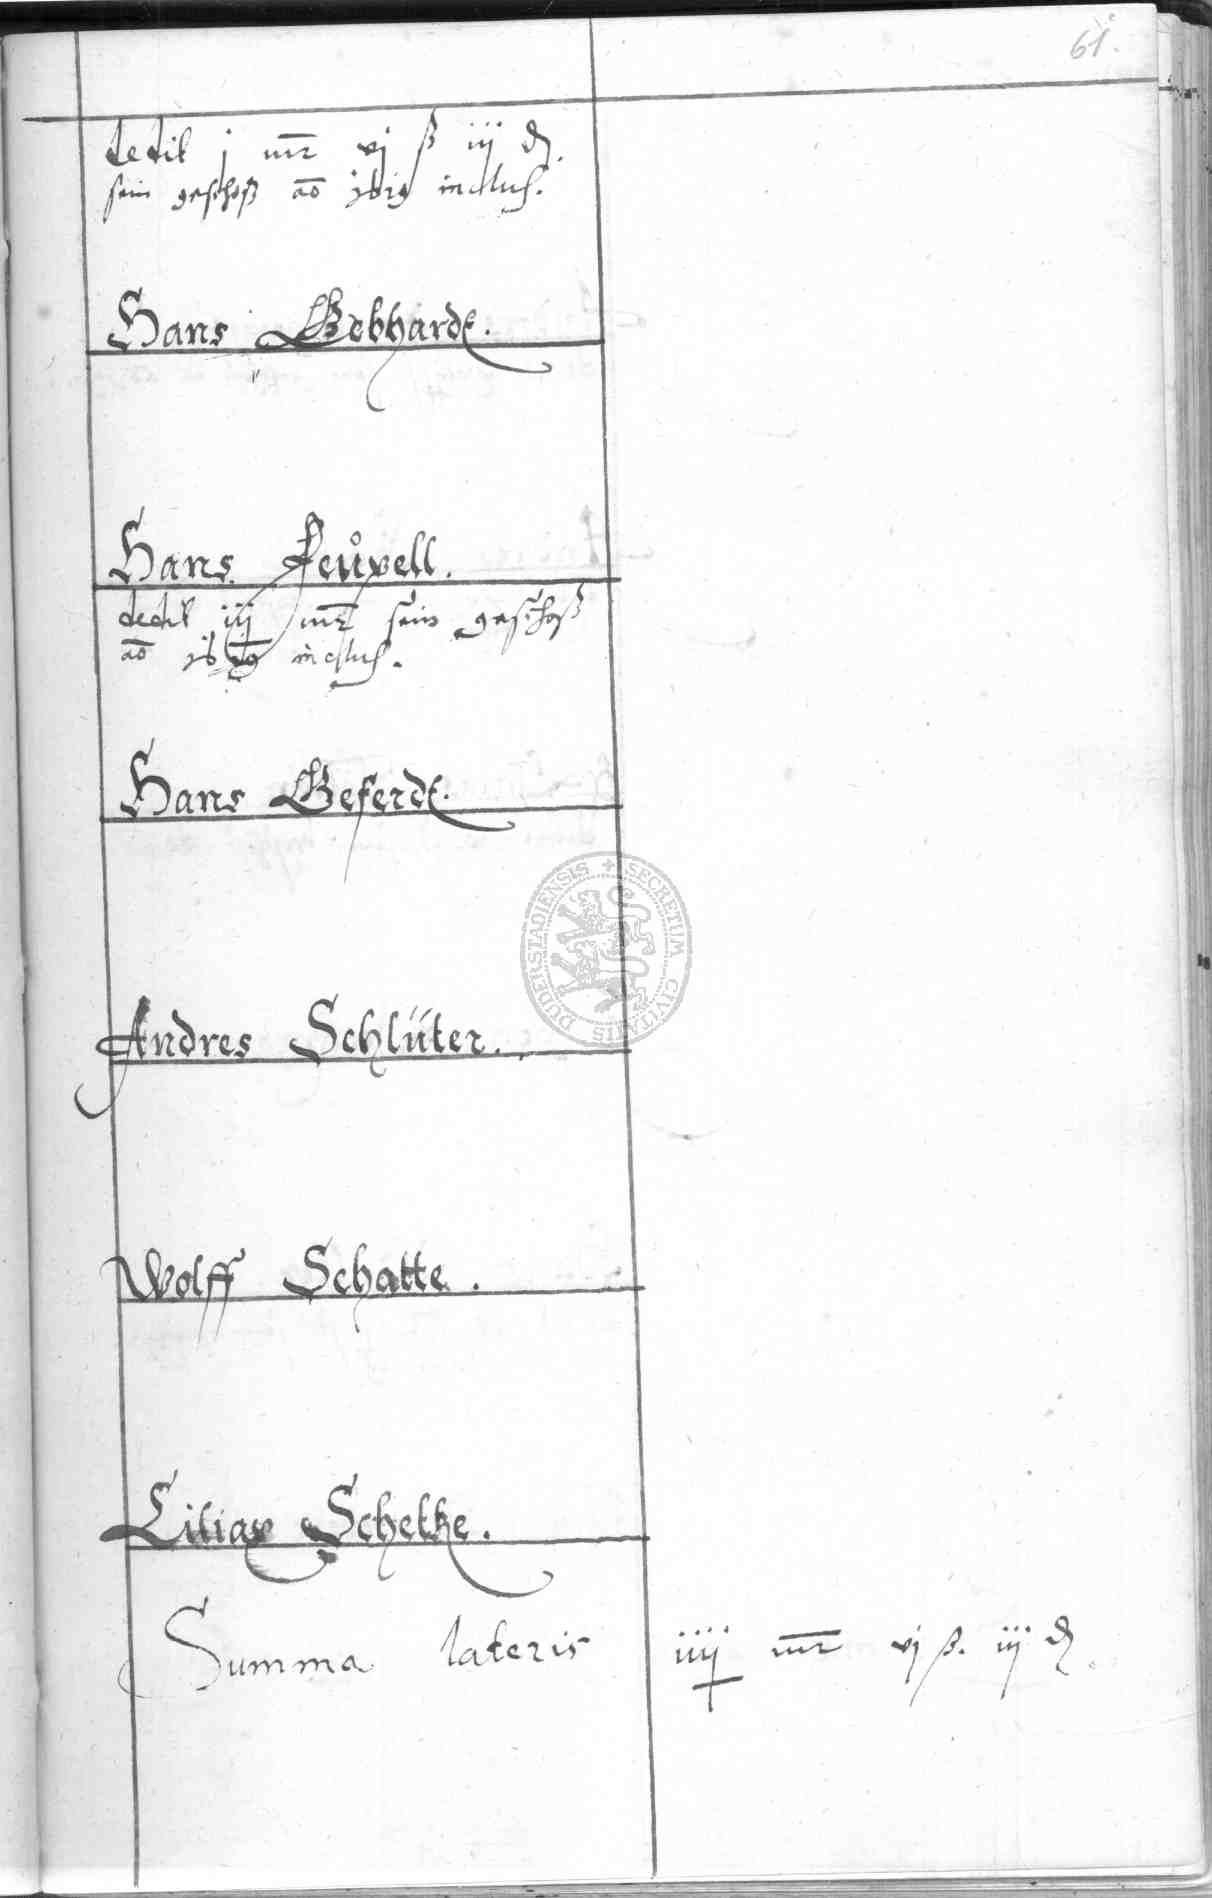 61.
dedit j mr vj ß iij ₰.
sein geschoß ao 1619 inclus.
Hans Gebhardt.
Hans
dedit iij mr sein geschoß
ao inclus.
Hans Geferdt.
Andres Schlüter.
Wolff Schatte.
Cilias Schelke.
Summa lateris iiij mr vj ß. iij ₰.
SECRETUM CIVITATIS DUDERSTADIENSIS